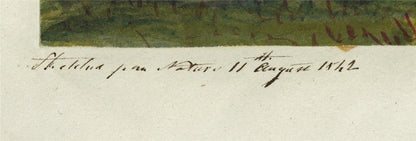 Sketched from Nature 11th August 1842